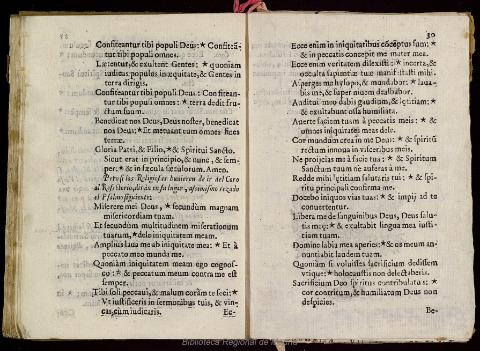 Confiteantur tibi populi Deus: * Confiteã-
tur tibi populi omnes.
Lætentur, & exultent Gentes: * quoniam
iudicas populos in æquitate, & Gentes in
terra dirigis.
Confiteantur tibi populi Deus: Confitean-
tur tibi populi omnes: * terra dedit fru-
ctum suum.
Benedicat nos Deus, Deus noster, benedicat
nos Deus: * Et metuant eum omnes fines
terræ.
Gloria Patri, & Filio, * & Spiritui Sancto.
Sicut erat in principio, & nunc, & sem-
per: * & in sæcula sæculorum. Amen.
Pero si los Religiosos huvieren de ir del Coro
al Refitorio, dirán en su lugar,
el Psalmo siguiente:
Miserere mei Deus, * secundùm magnam
misericordiam tuam.
Et secundùm multitudinem miserationum
tuarum, * dele iniquitatem meam.
Ampliùs laua me ab iniquitate mea: * Et à
peccato meo munda me.
Quoniàm iniquitatem meam ego cognos-
co: * & peccatum meum contra me est
semper.
Tibi soli peccaui, & malum coràm te feci: *
Vt iustificeris in sermonibus tuis, & vin-
cas, cùm iudicaris. Ec-
30
Ecce enim in iniquitatibus cõceptus sum: *
& in peccatis concepit me mater mea.
Ecce enim veritatem dilexisti: * incerta, &
occulta sapientiæ tuæ manifestasti mihi.
Asperges me hysopo, & mundabor: * laua-
bis me, & super niuem dealbabor.
Auditui meo dabis gaudium, & lætitiam: *
& exultabunt ossa humiliata.
Auerte faciem tuam à peccatis meis: * &
omnes iniquitates meas dele.
Cor mundum crea in me Deus: * & spiritũ
rectum innoua in visceribus meis.
Ne proijcias me à facie tua: * & Spiritum
Sanctum tuum ne auferas à me.
Redde mihi lætitiam salutaris tui: * & spi-
ritu principali confirma me.
Docebo iniquos vias tuas: * & impij ad te
conuertentur.
Libera me de sanguinibus Deus, Deus salu-
tis meæ: * & exultabit lingua mea iusti-
tiam tuam.
Domine labia mea aperies: * & os meum an-
nuntiabit laudem tuam.
Quoniàm si voluisses sacrificium dedissem
vtique: * holocaustis non delectaberis.
Sacrificium Deo spiritus contribulatus: *
cor contritum, & humiliatum Deus non
despicies.
Be-
Biblioteca Regional de Madrid